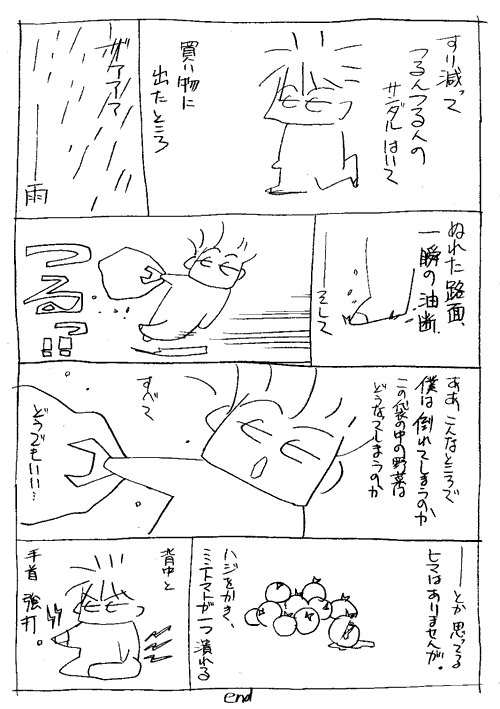 すり減って
つるんつるんの
サンダルはいて
買い物に
出たところ
ザアアアア
雨
ぬれた路面、
一瞬の油断、
そして
つるっ!!
ああ こんなところで
僕は倒れてしまうのか
この袋の中の野菜は
どうなってしまうのか
すべて
どうでもいい…
―とか思ってる
ヒマはありませんが。
ハジをかき、
ミニトマトが一つ潰れる
背中と
手首強打。
end